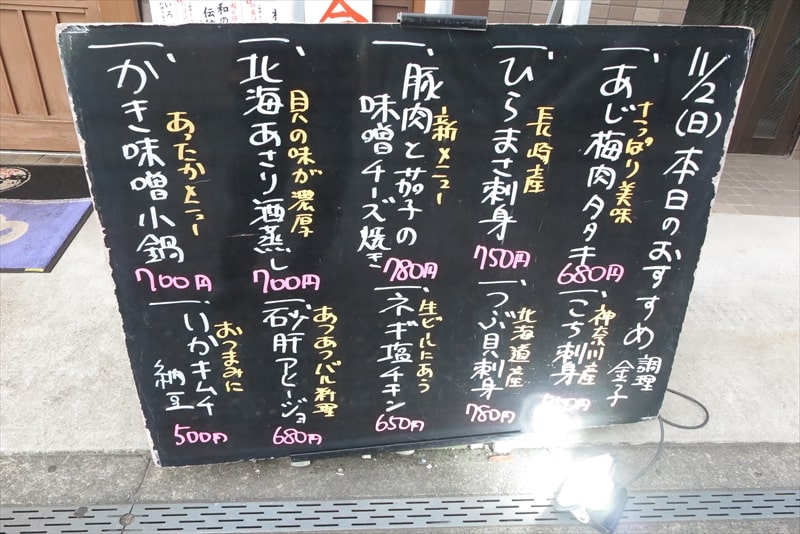 11/2(日)本日のおすすめ
調理 金子
一、あじ梅肉タタキ
さっぱり美味
680円
一、こち刺身
神奈川産
一、ひらまさ刺身
長崎産
750円
一、つぶ貝刺身
北海道産
780円
一、豚肉と茄子の
味噌チーズ焼き
新メニュー
780円
一、ネギ塩チキン
生ビールにあう
650円
一、北海あさり酒蒸し
貝の味が濃厚
700円
一、砂肝アヒージョ
あつあつバル料理
680円
一、かき味噌小鍋
あったかメニュー
700円
一、いかキムチ
納豆
おつまみに
500円